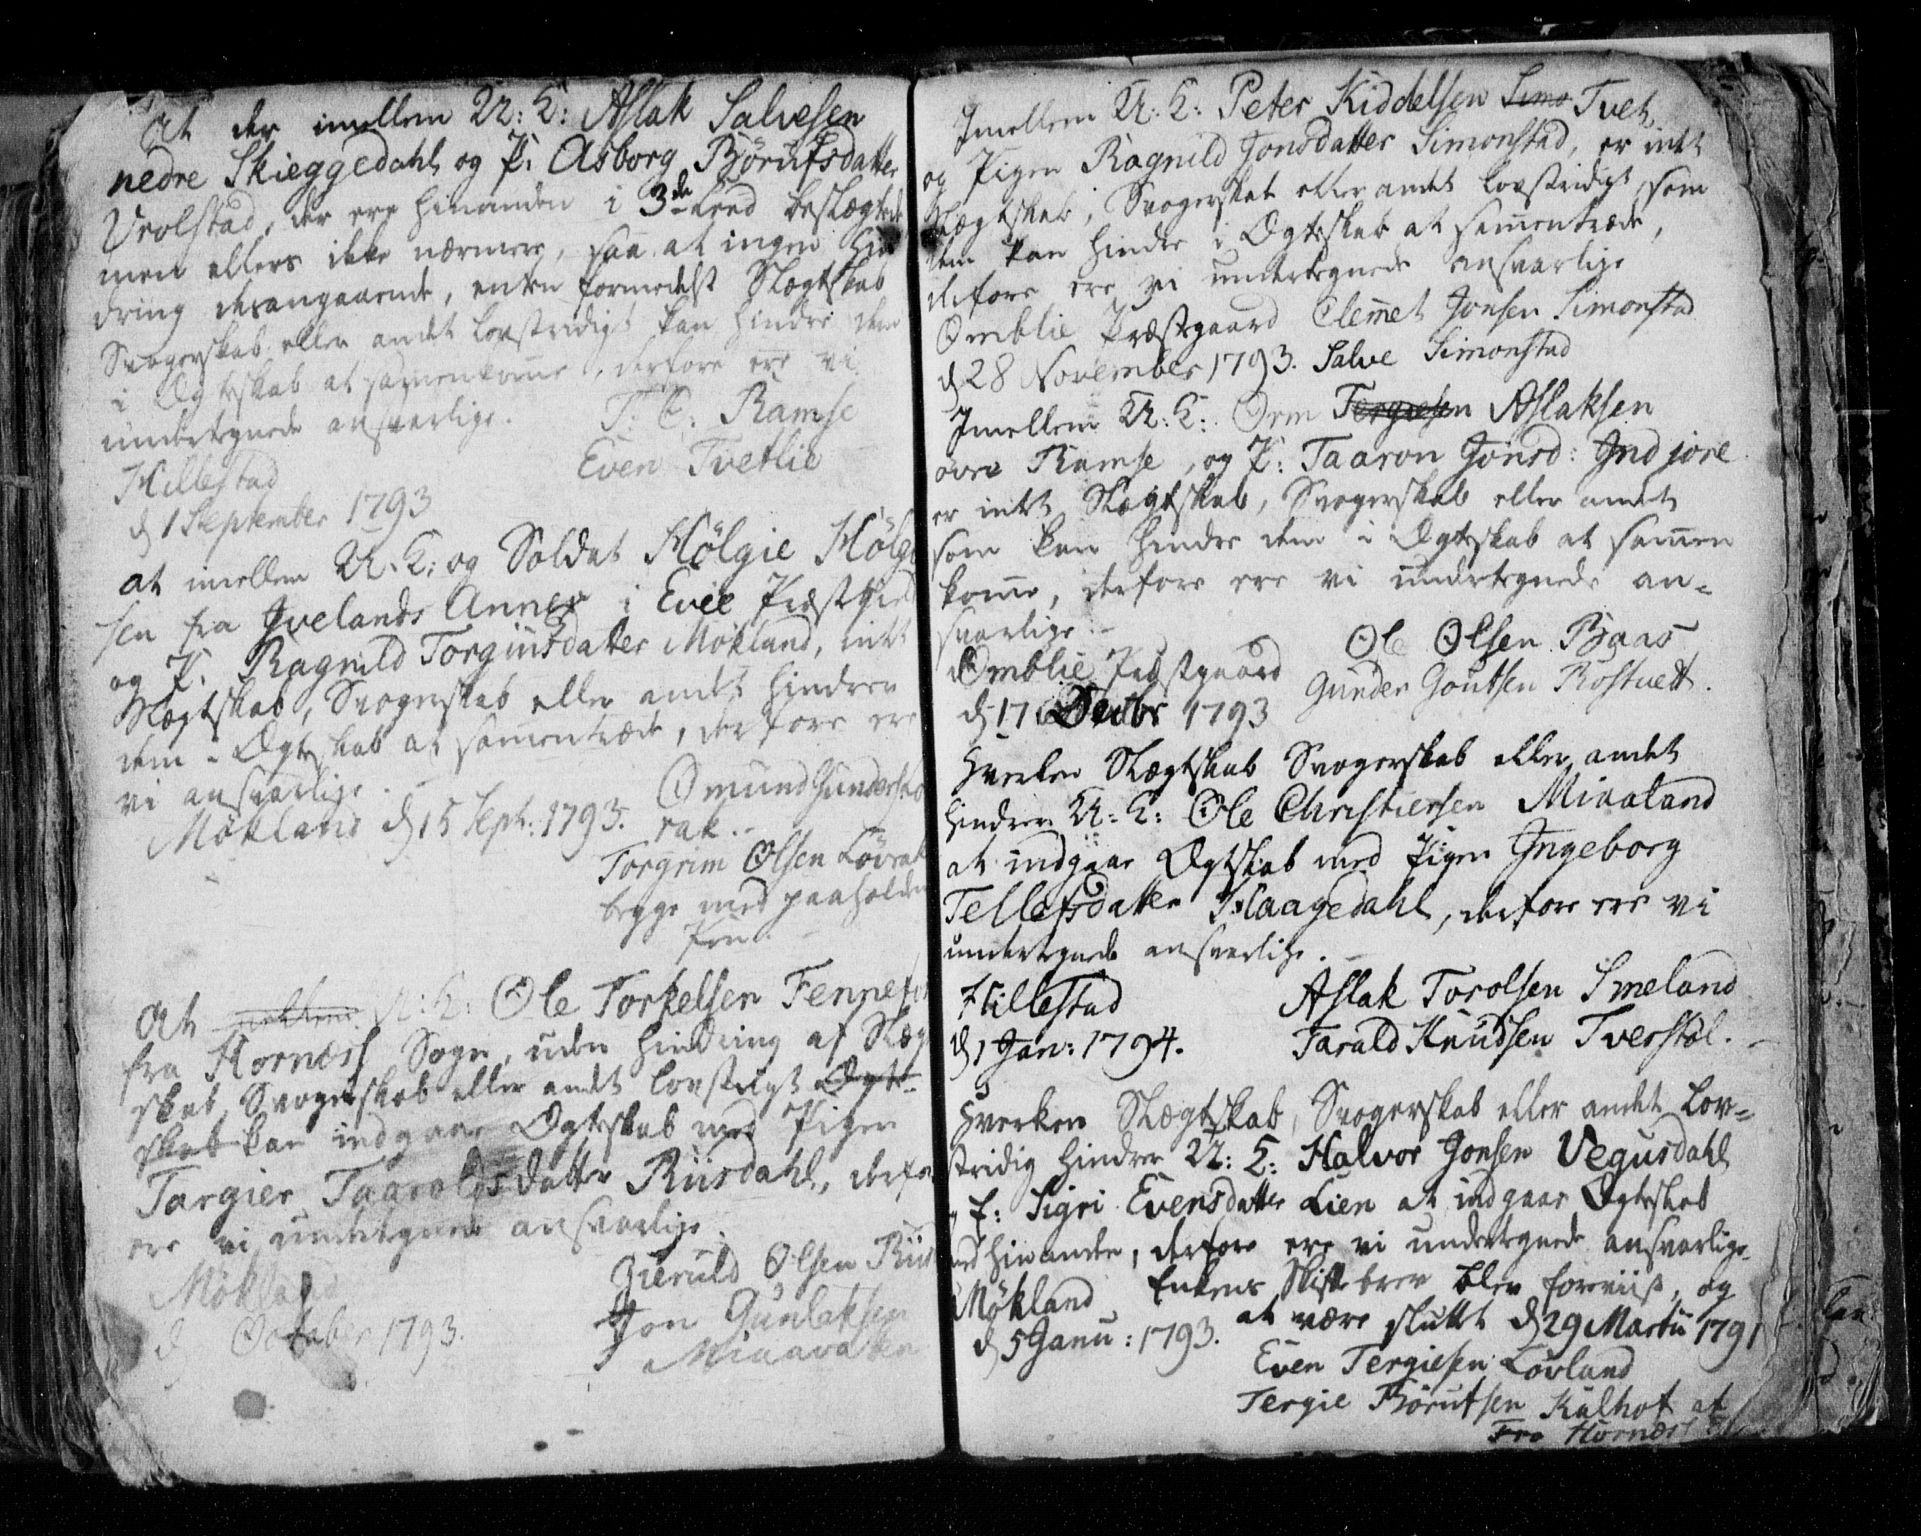 At der imellem U: K: Aslak Salvesen
nedre Skieggedahl og P. Asborg Börufsdatter
Urolstad, der ere hinanden i 3de Leed beslægtede
men ellers ikke nærmere, saa at ingen Hin
dring desangaaende, enten formedelst Slægtskab
Svogerskab eller andet lovstridigt kan hindre dem
i Ægteskab at sammenkomme, derfore ere vi
undertegnede ansvarlige.
T. O. Ramse
Even Tvetlie
Hillestad
d 1 September 1793
at imellem U. K: og Soldat Hölgie Hölgi
sen fra Ivelands Annex i Evie Præstgield
og P. Ragnild Torgiusdatter Mökland, intet
Slægtskab, Svogerskab eller andet hindrer
dem i Ægteskab at sammentræde, derfore ere
vi ansvarlige.
Mökland d 15 Sept: 1793.
Omund Gunders Löv
rak.
Torgrim Olsen Lövrak
begge med paaholden
Pen.
At imellem U: K: Ole Torkelsen Fennefos
fra Hornæss Sogn, uden hindring af Slægt
skab, Svogerskab eller andet lovstrigt Ægte
skab kan indgaae Ægteskab med Pigen
Targier Taaraldsdatter Riisdahl, derfore
ere vi undertegnede ansvarlige.
Mökland
d October 1793.
Gieruld Olsen Riisd
Jon Gunleksen
Miaavatten
Imellem U. K: Peter Kiddelsen Simo Tvet
og Pigen Ragnild Jonsdatter Simonstad, er intet
Slægtskab, Svogerskab eller andet lovstridigt, som
dem kan hindre i Ægteskab at sammentræde,
derfore ere vi undertegnede ansvarlige
Omblie Præstgaard Clemet Jonsen Simonstad
d 28 November 1793. Salve Simonstad
Imellem U. K: Orm Tergiesen Aslaksen
övre Ramse, og P: Taaron Jonsd: Indjore
er intet Slægtskab, Svogerskab eller andet
som kan hindre dem i Ægteskab at sammen
komme, derfore ere vi undertegnede an-
svarlige.
Omblie Præstgaard
d 17 Decbr 1793
Ole Olsen Baas
Gunder Goutsen Rostvett.
Hverken Slægtskab Svogerskab eller andet
hindrer U: K: Ole Christiersen Mivaland
at indgaae Ægteskab med Pigen Ingeborg
Tellefsdatter Haagedahl, derfore ere vi
undertegnede ansvarlige.
Hillestad
d 1 Jan: 1794.
Aslak Torolsen Smeland
Tarald Knudsen Tverstöl.
Hverken Slægtskab, Svogerskab eller andet Lov-
stridig hindrer U: K: Halvor Jonsen Vegusdahl
E: Sigri Evensdatter Lien at indgaae Ægteskab
med hinanden, derfore ere vi undertegnede ansvarlige.
Mökland
d 5 Janu: 1793.
Enkens Skiftebrev blev foreviist, og
at være sluttet d 29 Martii 1791
Even Tergiesen Lövland
Tergie Börufsen Kulhof af
Fra Hornæs